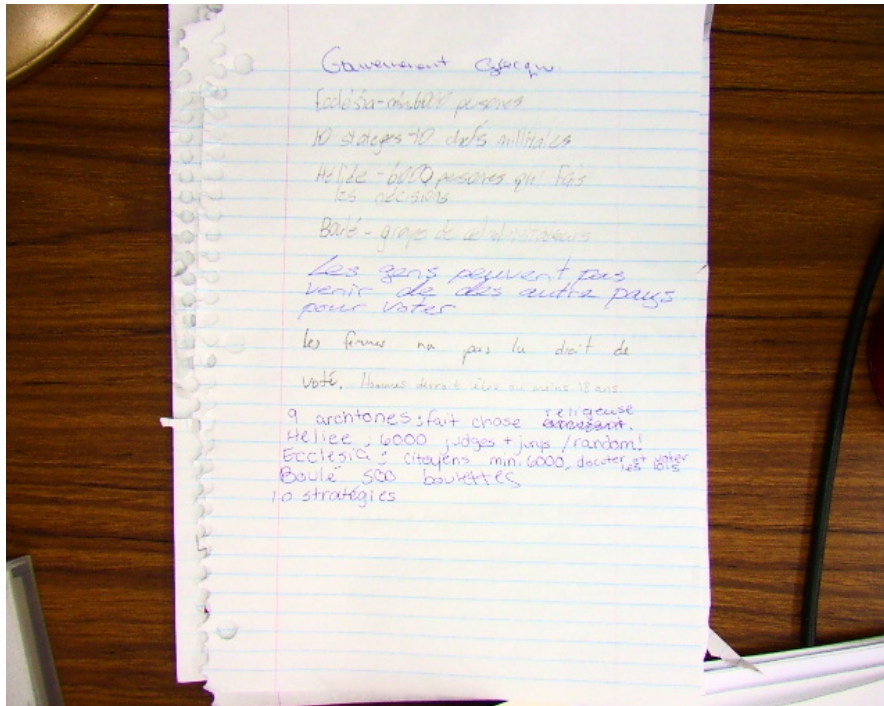 Gouvernement Grecque
Ecclésia-min.6000 personnes
10 stateges-10 chefs millitaires
Héliée -6000 pesones qui fais
les décisions
Boulé - groupe de
Les gens peuvent pas
venir de des autre pays
pour voter
les femmes na pas lu droit de
voté. Hommes devrait être au moins 18 ans.
9 archtones : fait chose religeuse
Heliee : 6000 judges + jurys / random!
Ecclesia : citoyens min. 6000, et voter
les lois
Boulé 500 boulettes
10 stratégies